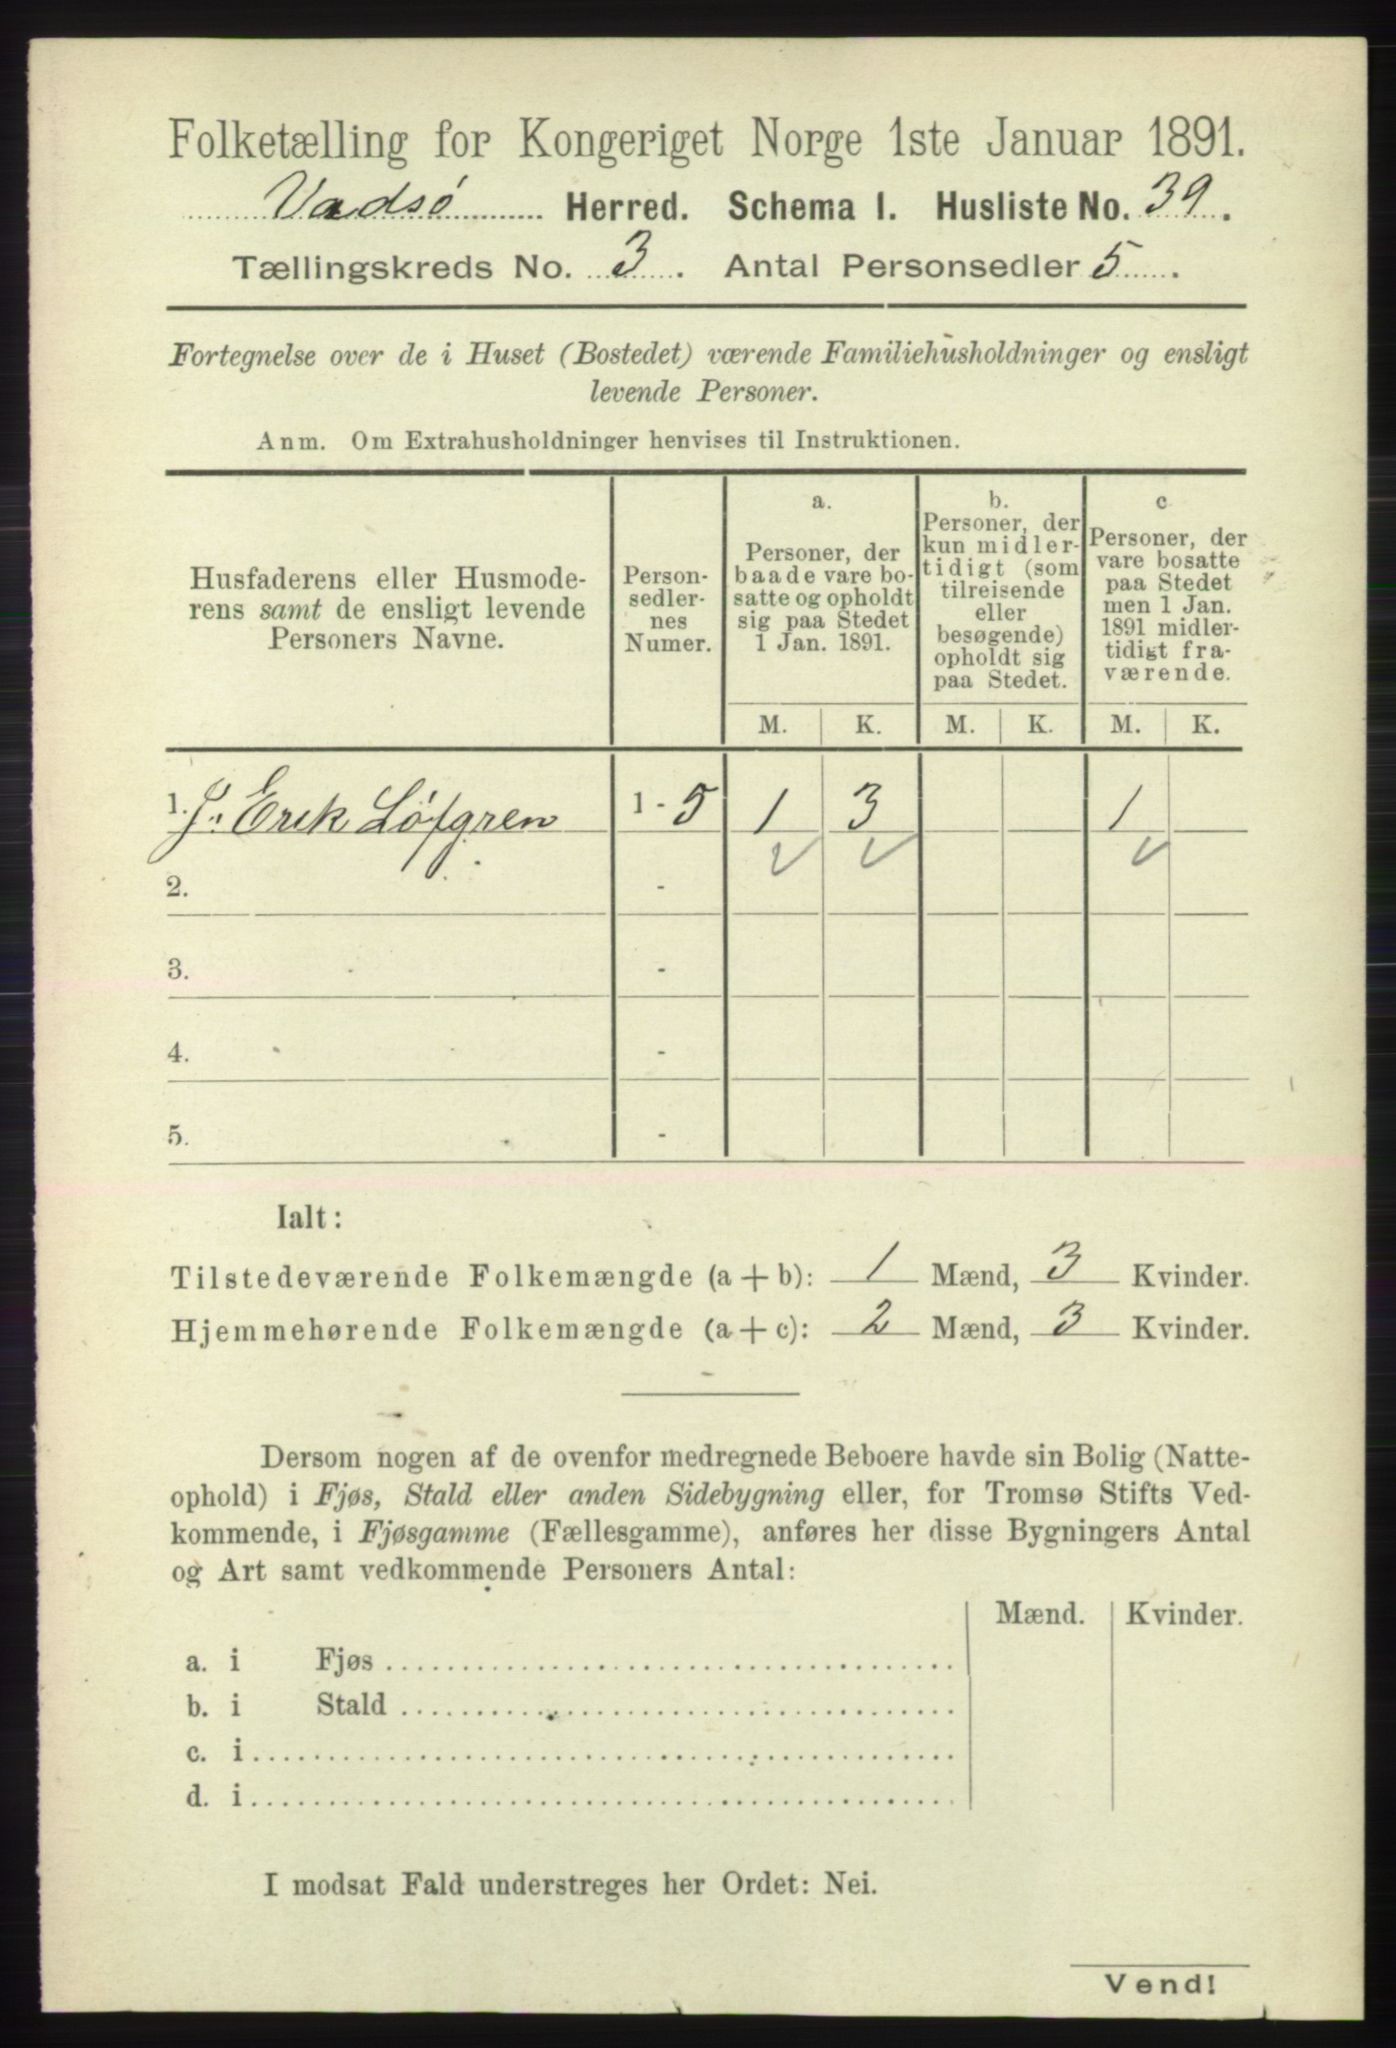 Folketælling for Kongeriget Norge 1ste Januar 1891.
Vadsø Herred. Schema I. Husliste No. 39.
Tællingskreds No. 3. Antal Personsedler 5.
Fortegnelse over de i Huset (Bostedet) værende Familiehusholdninger og ensligt
levende Personer.
Anm. Om Extrahusholdninger henvises til Instruktionen.
Husfaderens eller Husmode-
rens samt de ensligt levende
Personers Navne.
Person-
sedler-
nes
Numer.
a.
Personer, der
baade vare bo-
satte og opholdt
sig paa Stedet
1 Jan. 1891.
b.
Personer, der
kun midler-
tidigt (som
tilreisende
eller
besøgende)
opholdt sig
paa Stedet.
c
Personer, der
vare bosatte
paa Stedet
men 1 Jan.
1891 midler-
tidigt fra-
værende.
M. K. M. K. M. K.
1. J. Erik Löfgren 1 - 5 1 3 1
2. -
3. -
4. -
5. -
Ialt:
Tilstedeværende Folkemængde (a + b): 1 Mænd, 3 Kvinder.
Hjemmehørende Folkemængde (a + c): 2 Mænd, 3 Kvinder.
Dersom nogen af de ovenfor medregnede Beboere havde sin Bolig (Natte-
ophold) i Fjøs, Stald eller anden Sidebygning eller, for Tromsø Stifts Ved-
kommende, i Fjøsgamme (Fællesgamme), anføres her disse Bygningers Antal
og Art samt vedkommende Personers Antal:
Mænd. Kvinder.
a. i Fjøs
b. i Stald
c. i
d. i
I modsat Fald understreges her Ordet: Nei.
Vend!